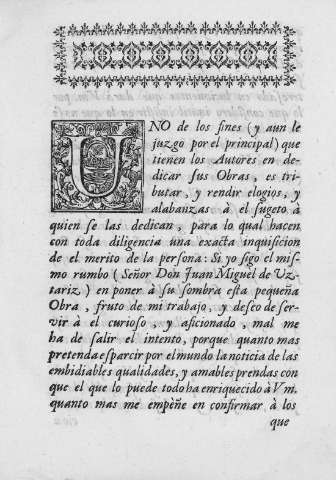 UNO de los fines (y aun le
juzgo por el principal) que
tienen los Autores en de-
dicar sus Obras, es tri-
butar, y rendir elogios, y
alabanzas à el sugeto à
quien se las dedican, para lo qual hacen
con toda diligencia una exacta inquisicion
de el merito de la persona: Si yo sigo el mis-
mo rumbo (Señor Don Juan Miguèl de Uz-
tariz) en poner à su sombra esta pequeña
Obra, fruto de mi trabajo, y deseo de ser-
vir à el curioso, y aficionado, mal me
ha de salir el intento, porque quanto mas
pretenda esparcir por el mundo la noticia de las
embidiables qualidades, y amables prendas con
que el que lo puede todo ha enriquecido à Vm.
quanto mas me empeñe en confirmar à los
que